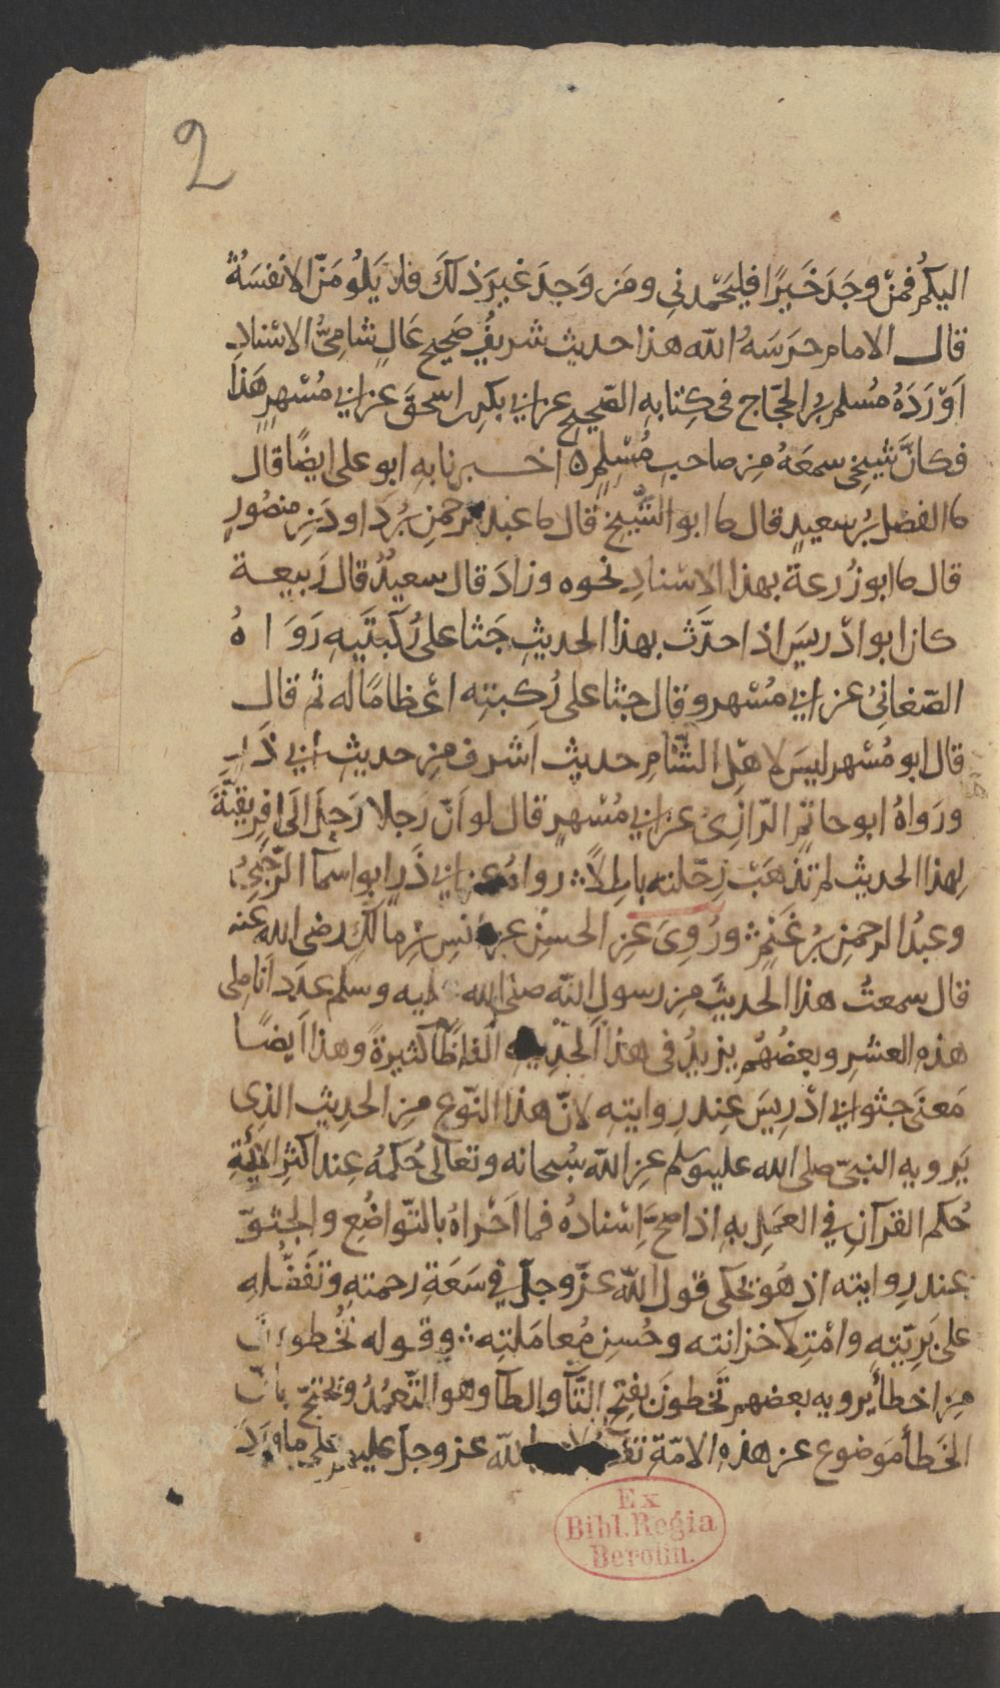 2
اليكم فمن وجد خيرا فليحمدني ومن وجد غير ذلك فلا يلومن الا نفسه
قال الامام حرسه الله هذا حديث شريف صحيح عال شامي الاسناد
اورده مسلم بن الحجاج في كتابه الصحيح عن ابي بكر بن اسحق عن ابي مسهر هذا
فكان شيخي سمعه من صاحب مسلم ه اخبرنا به ابو علي ايضا قال
نا الفضل بن سعيد قال نا ابو الشيخ قال نا عبد الرحمن بن داود بن منصور
قال نا ابو زرعة بهذا الاسناد نحوه وزاد قال سعيد قال ربيعة
كان ابو ادريس اذا حدث بهذا الحديث جثا على ركبتيه رواه
الصغاني عن ابي مسهر وقال جثا على ركبته اعظاما له ثم قال
قال ابو مسهر ليس لاهل الشام حديث اشرف من حديث ابي ذر
ورواه ابو حاتم الرازي عن ابي مسهر قال لو ان رجلا رحل الى افريقية
لهذا الحديث لم تذهب رحلته باطلا رواه عن ابي ذر ابو اسما الرحبي
وعبد الرحمن بن غنم وروي عن الحسن عن انس بن مالك رضى الله عنه
قال سمعت هذا الحديث من رسول الله صلى الله عليه وسلم عدد اناملي
هذه العشر وبعضهم يزيد في هذا الحديث الفاظا كثيرة وهذا ايضا
معنى جثو ابي ادريس عند روايته لان هذا النوع من الحديث الذي
يرويه النبي صلى الله عليه وسلم عن الله سبحانه وتعالى حكمه عند اكثر الائمة
حكم القرآن في العمل به اذا صح اسناده فما احراه بالتواضع والجثو
عند روايته اذ هو يحكى قول الله عز وجل في سعة رحمته وتفضله
على بريته وامتلا خزانته وحسن معاملته وقوله تخطون
من اخطأ يرويه بعضهم تخطون بفتح التآ والطآ وهو التعمد ويحتج بان
الخطأ موضوع عن هذه الامة الله عز وجل عليهم على ما ورد
Ex
Bibl. Regia
Berolin.